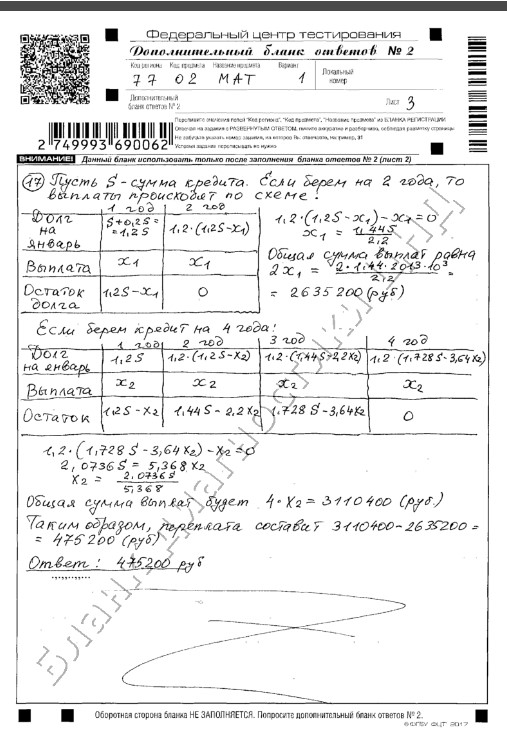 Федеральный центр тестирования
Дополнительный бланк ответов № 2
Код региона Код предмета Название предмета Вариант
77 02 МАТ 1
Локальный номер
Дополнительный бланк ответов № 2
Лист 3
Перепишите значения полей "Код региона", "Код предмета", "Название предмета" из БЛАНКА РЕГИСТРАЦИИ
Отвечая на задания с РАЗВЕРНУТЫМ ОТВЕТОМ, пишите аккуратно и разборчиво, соблюдая разметку страницы
Не забудьте указать номер задания, на которое Вы отвечаете, например, 31
Условия задания переписывать не нужно
2 749993 690062
ВНИМАНИЕ! Данный бланк использовать только после заполнения бланка ответов № 2 (лист 2)
17 Пусть S - сумма кредита. Если берем на 2 года, то
выплаты происходят по схеме:
1 год 2 год
Долг на январь S+0,2S= =1,2S 1,2·(1,2S-x1)
Выплата x1 x1
Остаток долга 1,2S-x1 0
1,2·(1,2S-x1)-x1=0
x1 = 1,44S / 2,2
Общая сумма выплат равна
2x1 = 2·1,44·2013·10³ / 2,2 =
= 2635200 (руб)
Если берем кредит на 4 года:
1 год 2 год 3 год 4 год
Долг на январь 1,2S 1,2·(1,2S-x2) 1,2·(1,44S-2,2x2) 1,2·(1,728S-3,64x2)
Выплата x2 x2 x2 x2
Остаток 1,2S-x2 1,44S-2,2x2 1,728S-3,64x2 0
1,2·(1,728S-3,64x2)-x2=0
2,0736S = 5,368x2
x2 = 2,0736S / 5,368
Общая сумма выплат будет 4·x2 = 3110400 (руб.)
Таким образом, переплата составит 3110400-2635200=
= 475200 (руб)
Ответ: 475200 руб
Оборотная сторона бланка НЕ ЗАПОЛНЯЕТСЯ. Попросите дополнительный бланк ответов № 2.
© ФГБУ ФЦТ 2017